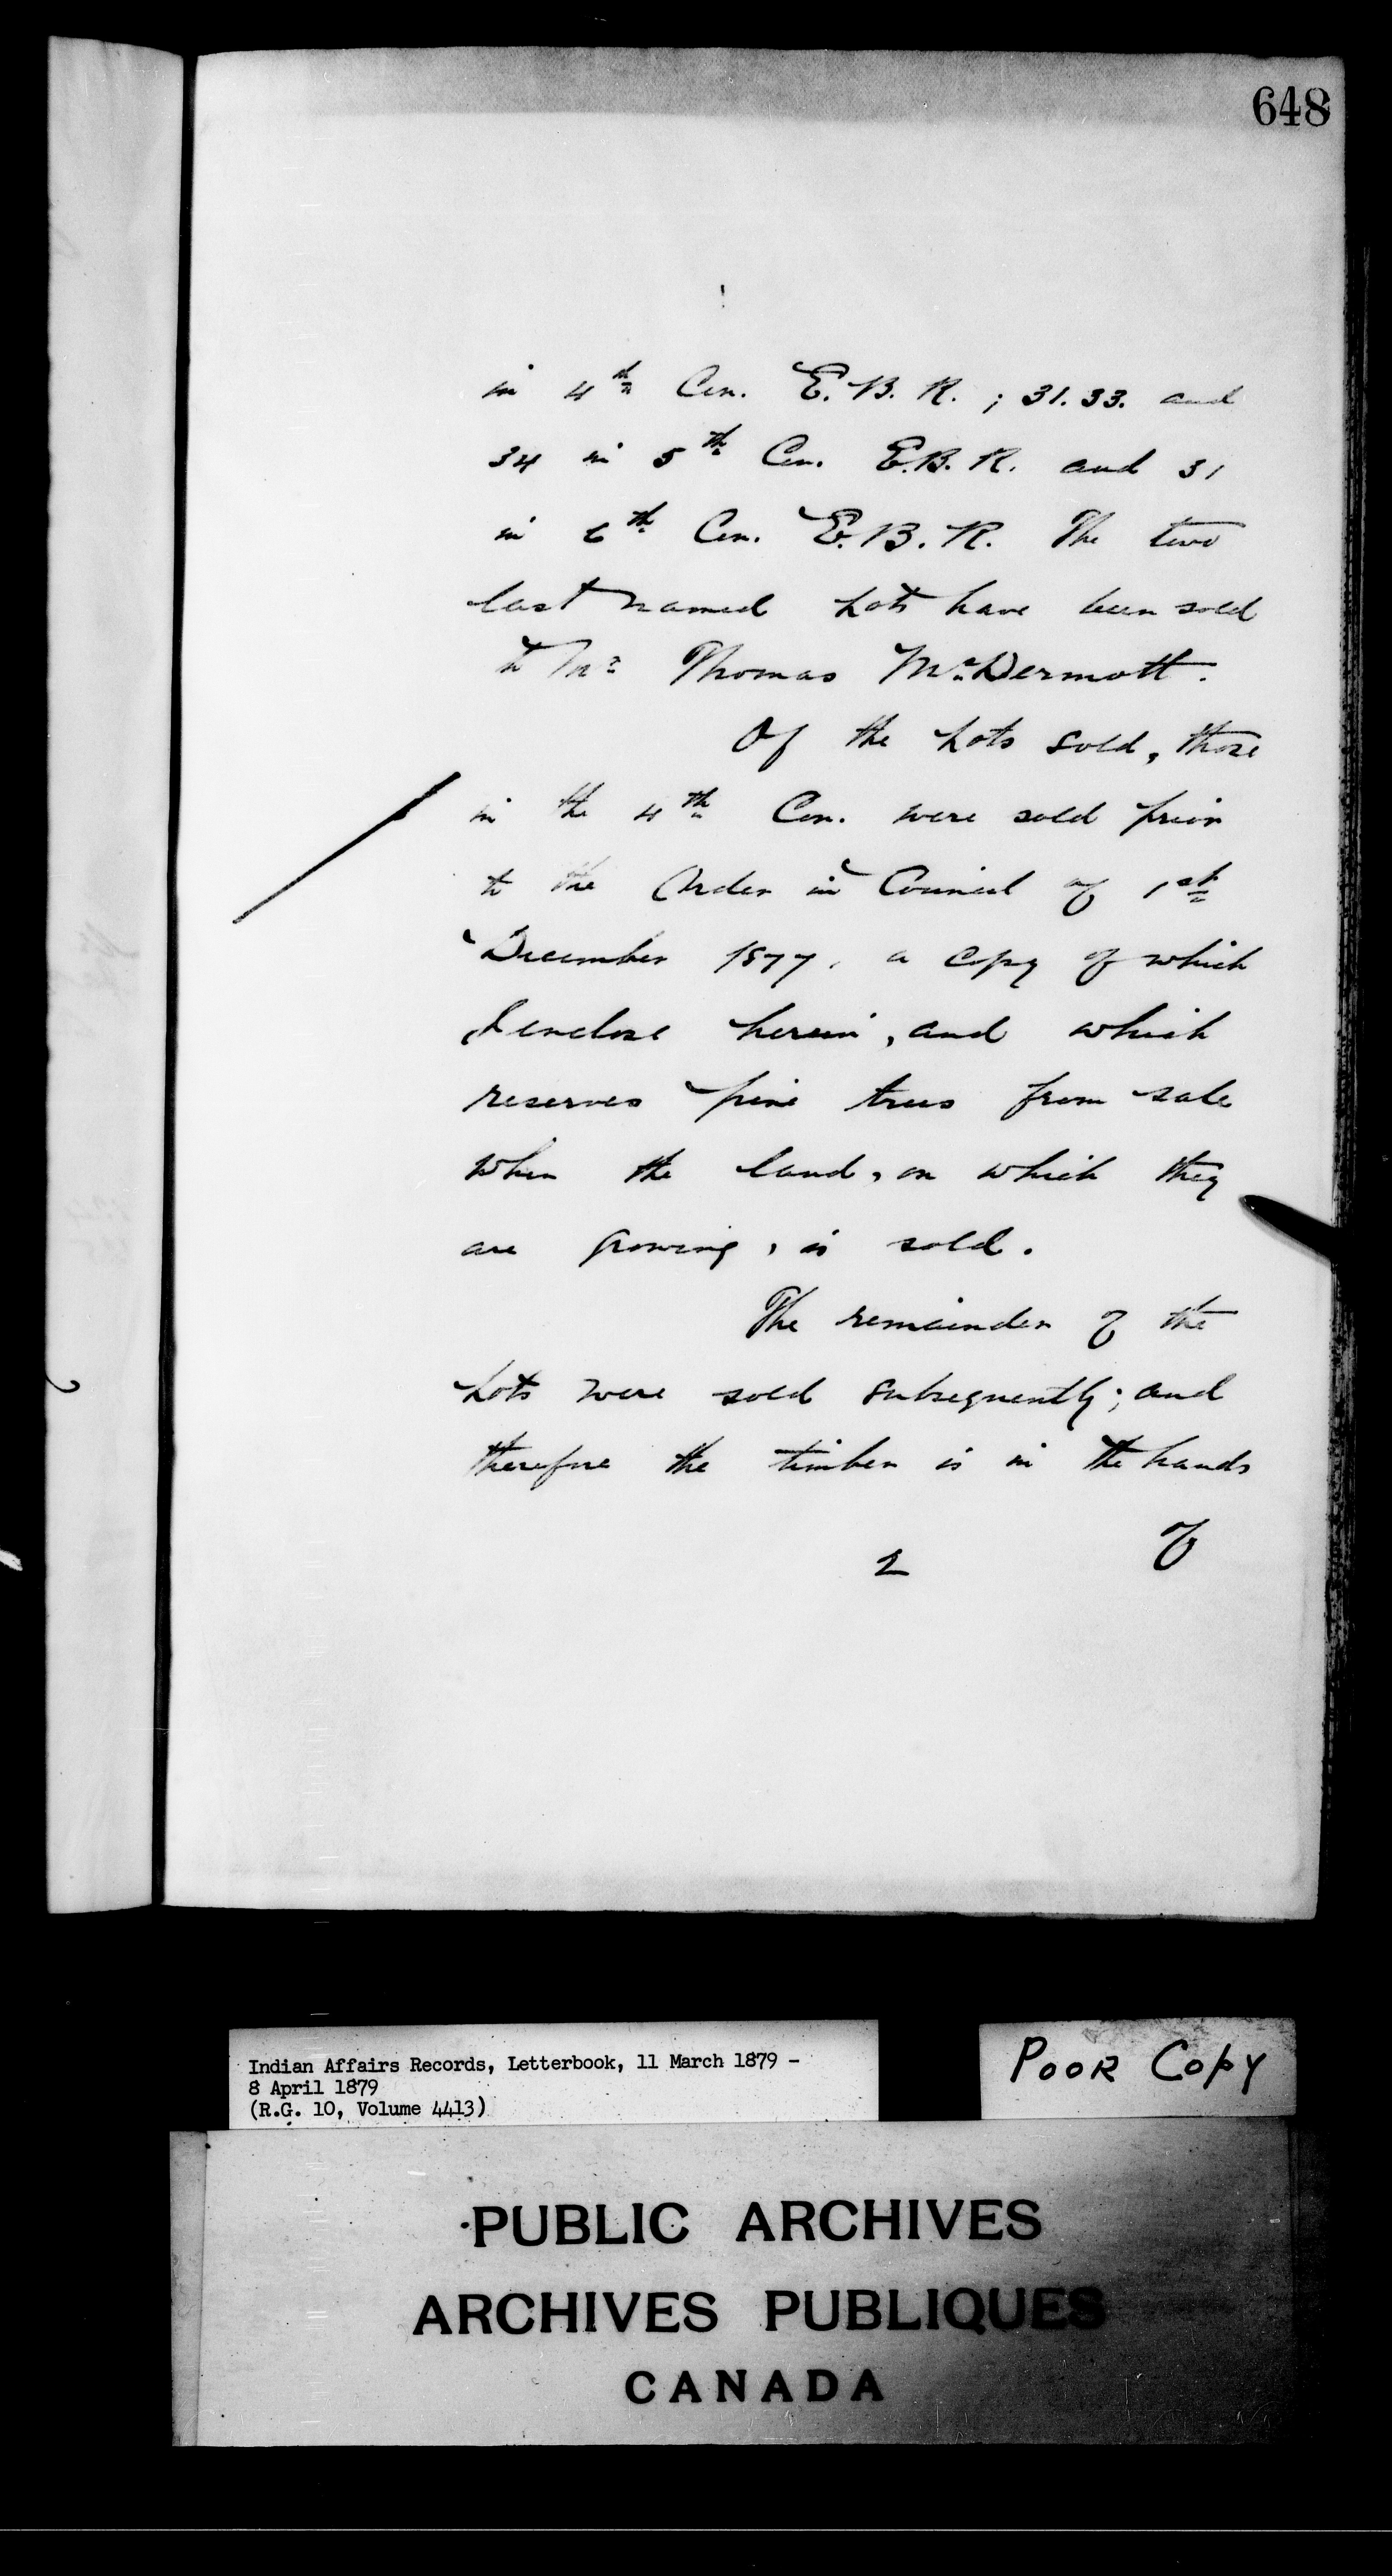 648
in 4th Con. E.B.R. ; 31. 33. and
34 in 5th Con. E.B.R. and 31
in 6th Con. E.B.R. The two
last named Lots have been sold
to Mr Thomas McDermott.
Of the Lots sold, those
in the 4th Con. were sold prior
to the Order in Council of 1st
December 1877, a copy of which
I enclose herein, and which
reserves pine trees from sale
when the land, on which they
are growing, is sold.
The remainder of the
Lots were sold subsequently; and
therefore the timber is in the hands
of
2
Indian Affairs Records, Letterbook, 11 March 1879 -
8 April 1879
(R.G. 10, Volume 4413)
POOR COPY
PUBLIC ARCHIVES
ARCHIVES PUBLIQUES
CANADA